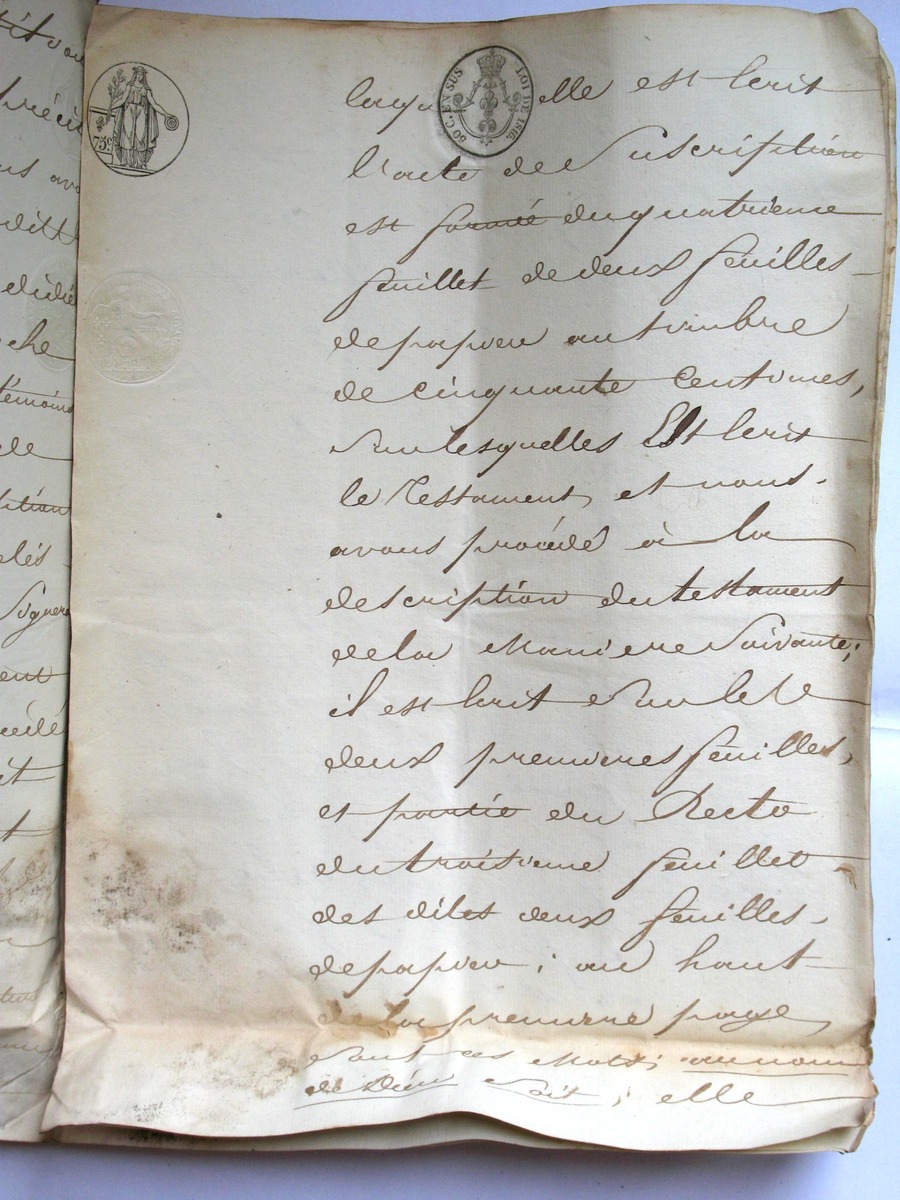 75c.
50 C. EN SUS LOI DE 1816.
laquelle est Ecrit
l'acte de Suscription
est formé du quatrieme
feuillet de deux feuilles
de papier au timbre
de cinquante Centimes,
sur lesquelles Est Ecrit
le Testament, et nous
avons procédé à la
description du testament
de la Maniere Suivante;
il est Ecrit sur les
deux premieres feuilles,
et partie du Recto
du troisieme feuillet
des dites deux feuilles
de papier; au haut
de la premiere page
sont ces Mots; au nom
de Dieu Soit; elle